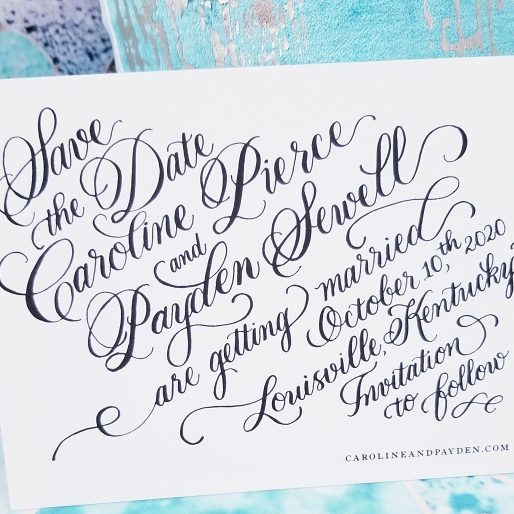 Save
the Date
Caroline Pierce
and
Payden Sewell
are getting married
October 10th, 2020
Louisville, Kentucky
Invitation
to follow
CAROLINEANDPAYDEN.COM